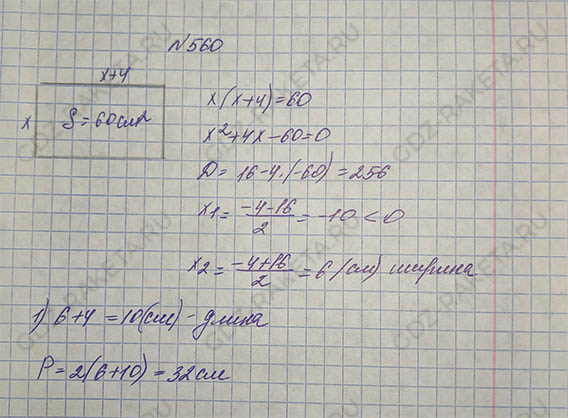 №560
x+4
x
S=60см²
x(x+4)=60
x²+4x-60=0
D= 16-4·(-60)=256
x₁= (-4-16)/2 = -10 < 0
x₂= (-4+16)/2 = 6 (см) ширина
1) 6+4 =10(см) - длина
P=2(6+10)=32см
GDZ-RAKETA.RU